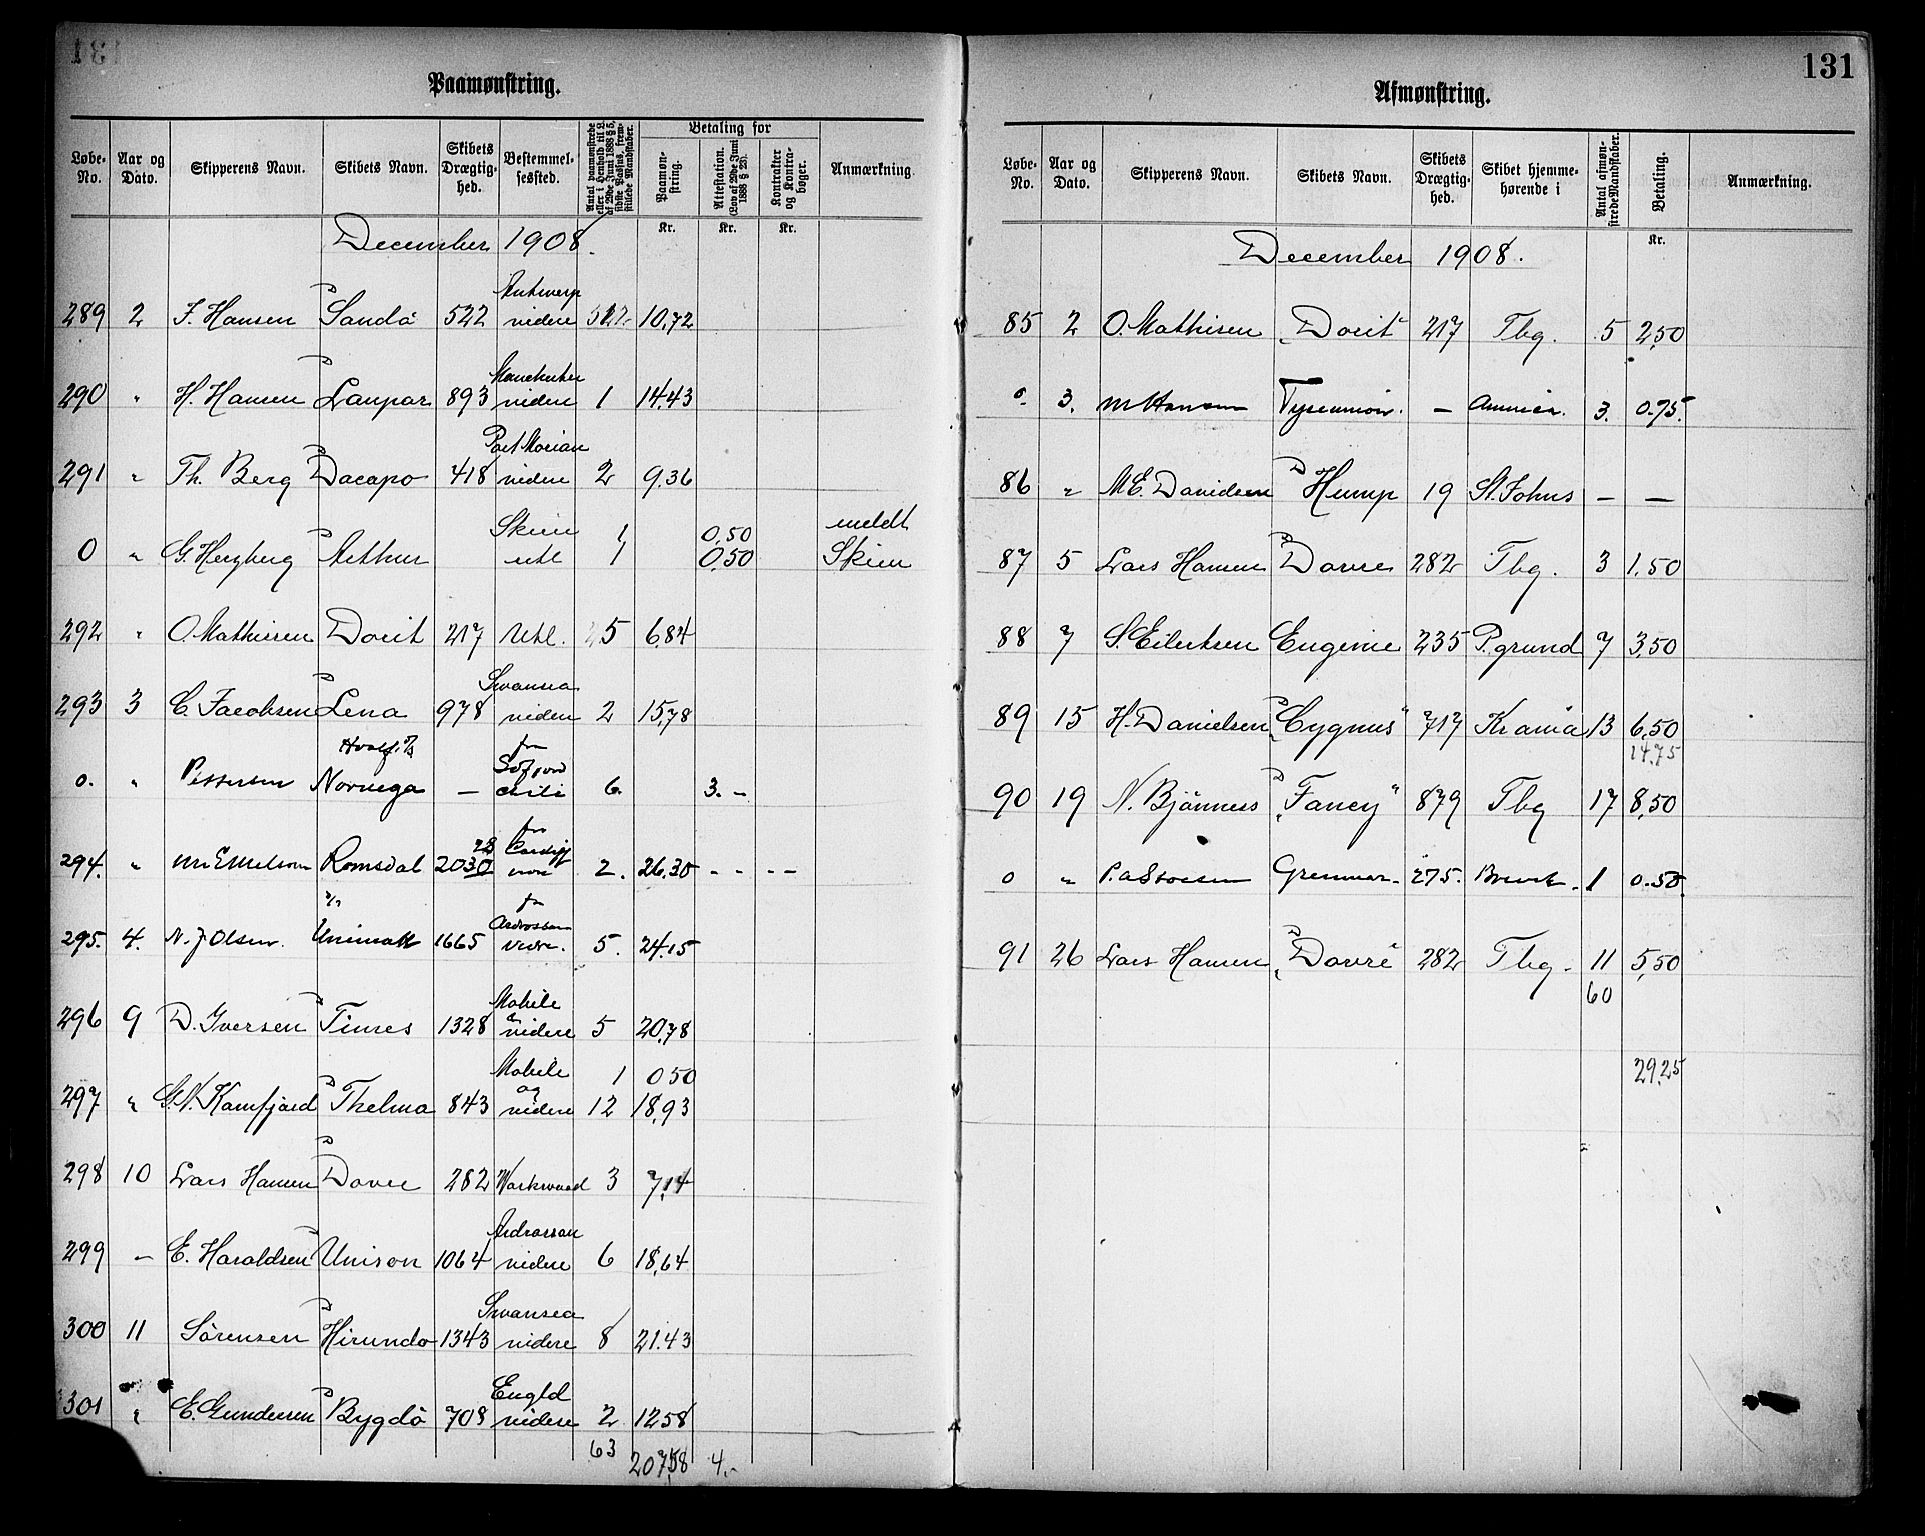 131
Paamønstring.
Løbe-No. Aar og Dato. Skipperens Navn. Skibets Navn. Skibets Drægtighed. Bestemmelsessted. Antal paamønstrede eller i Henhold til L. af 29de Juni 1888 § 5, sidste Passus, fremstillede Mandskaber. Betaling for Paamønstring. Attestation. (Lov af 29de Juni 1888 § 23). Kontrakter og Kontrabøger. Anmærkning.
Kr. Kr. Kr.
December 1908.
Antwerp
289 2 F. Hansen Sandö 522 videre 10,72
290 " H. Hansen 893 videre 1 14.43
291 " Th. Berg Dacapo 418 videre 2 9.36
Skien 1 0,50 meldt
0 " G. Herzberg Arthur utl 1 0,50 Skien
292 " O. Mathisen Dorit 217 Utl. 5 6.84
Swansea
293 3 C. Jacobsen Lena 978 videre 2 15,78
fra
o. " Pettersen Norvega — 6. 3. –
fra
28 Cardiff
294. " Romsdal 2030 2. 26.30 - - - -
fra
Ardrossan
295. 4. N. J Olsen. 1665 vidre. 5. 24.15
Mobile
296 9 D. Iversen Times 1328 & videre 5 20,78
Mobile 1 0 50
og
297 " G. N. Kamfjord Thelma 843 videre 12 18,93
298 10 Lars Hansen Dovre 282 Warkword 3 7,14
Ardrossan
299 – E. Haraldsen Unison 1064 videre 6 18,64
Swansea
300 11 Sörensen Hirundo 1343 videre 8 21.43
Engld
301 " E. Gundersen Bygdö 708 videre 2 12 58
63
207,58 4.-
131
Afmønstring.
Løbe-No. Aar og Dato. Skipperens Navn. Skibets Navn. Skibets Drægtighed. Skibet hjemmehørende i Antal afmønstrede Mandskaber. Betaling. Anmærkning.
Kr.
December 1908.
85 2 O. Mathisen „Dorit" 217 Tbg. 5 2,50
o. 3. M Hansen – 3. 0.75.
86 " M E. Davidsen Hump 19 St. Johns — —
87 5 Lars Hansen Dovre 282 Tbg. 3 1,50
88 7 S. Eilertsen Eugenie 235 P.grund 7 3,50
89 15 H. Danielsen „Cygnus" 717 Krania 13 6,50
14.75
90 19 N. Bjönness „Fancy" 879 Tbg 17 8,50
o " Grenmar. 275. Brevik. 1 0.50.
91 26 Lars Hansen „Dovre" 282 Tbg. 11 5,50
60
29,25